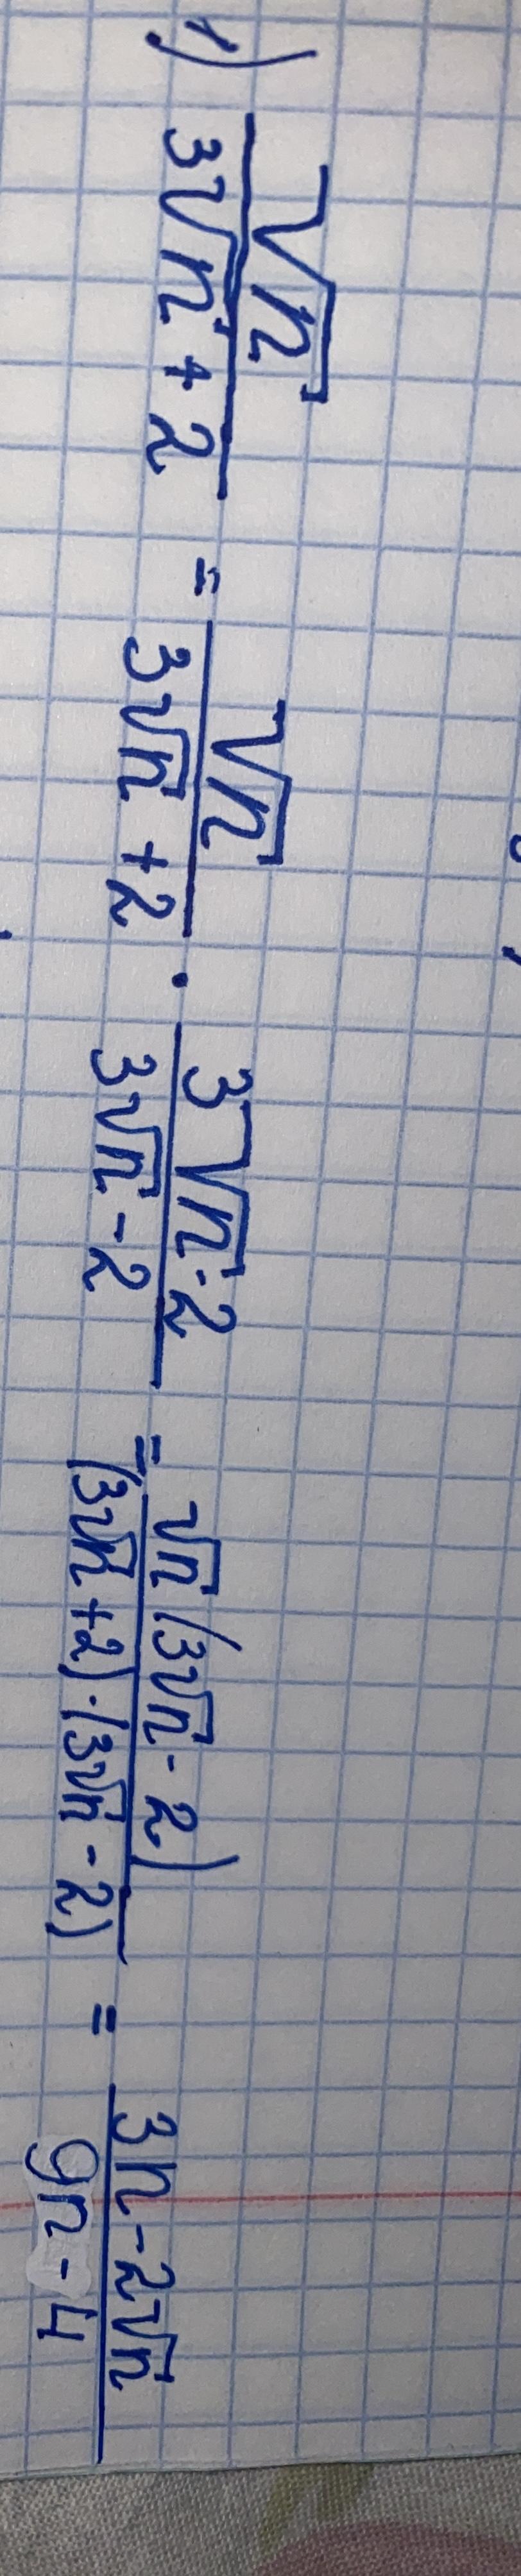 1) √n / (3√n + 2) = √n / (3√n + 2) · (3√n - 2) / (3√n - 2) = √n (3√n - 2) / ((3√n + 2) · (3√n - 2)) = (3n - 2√n) / (9n - 4)